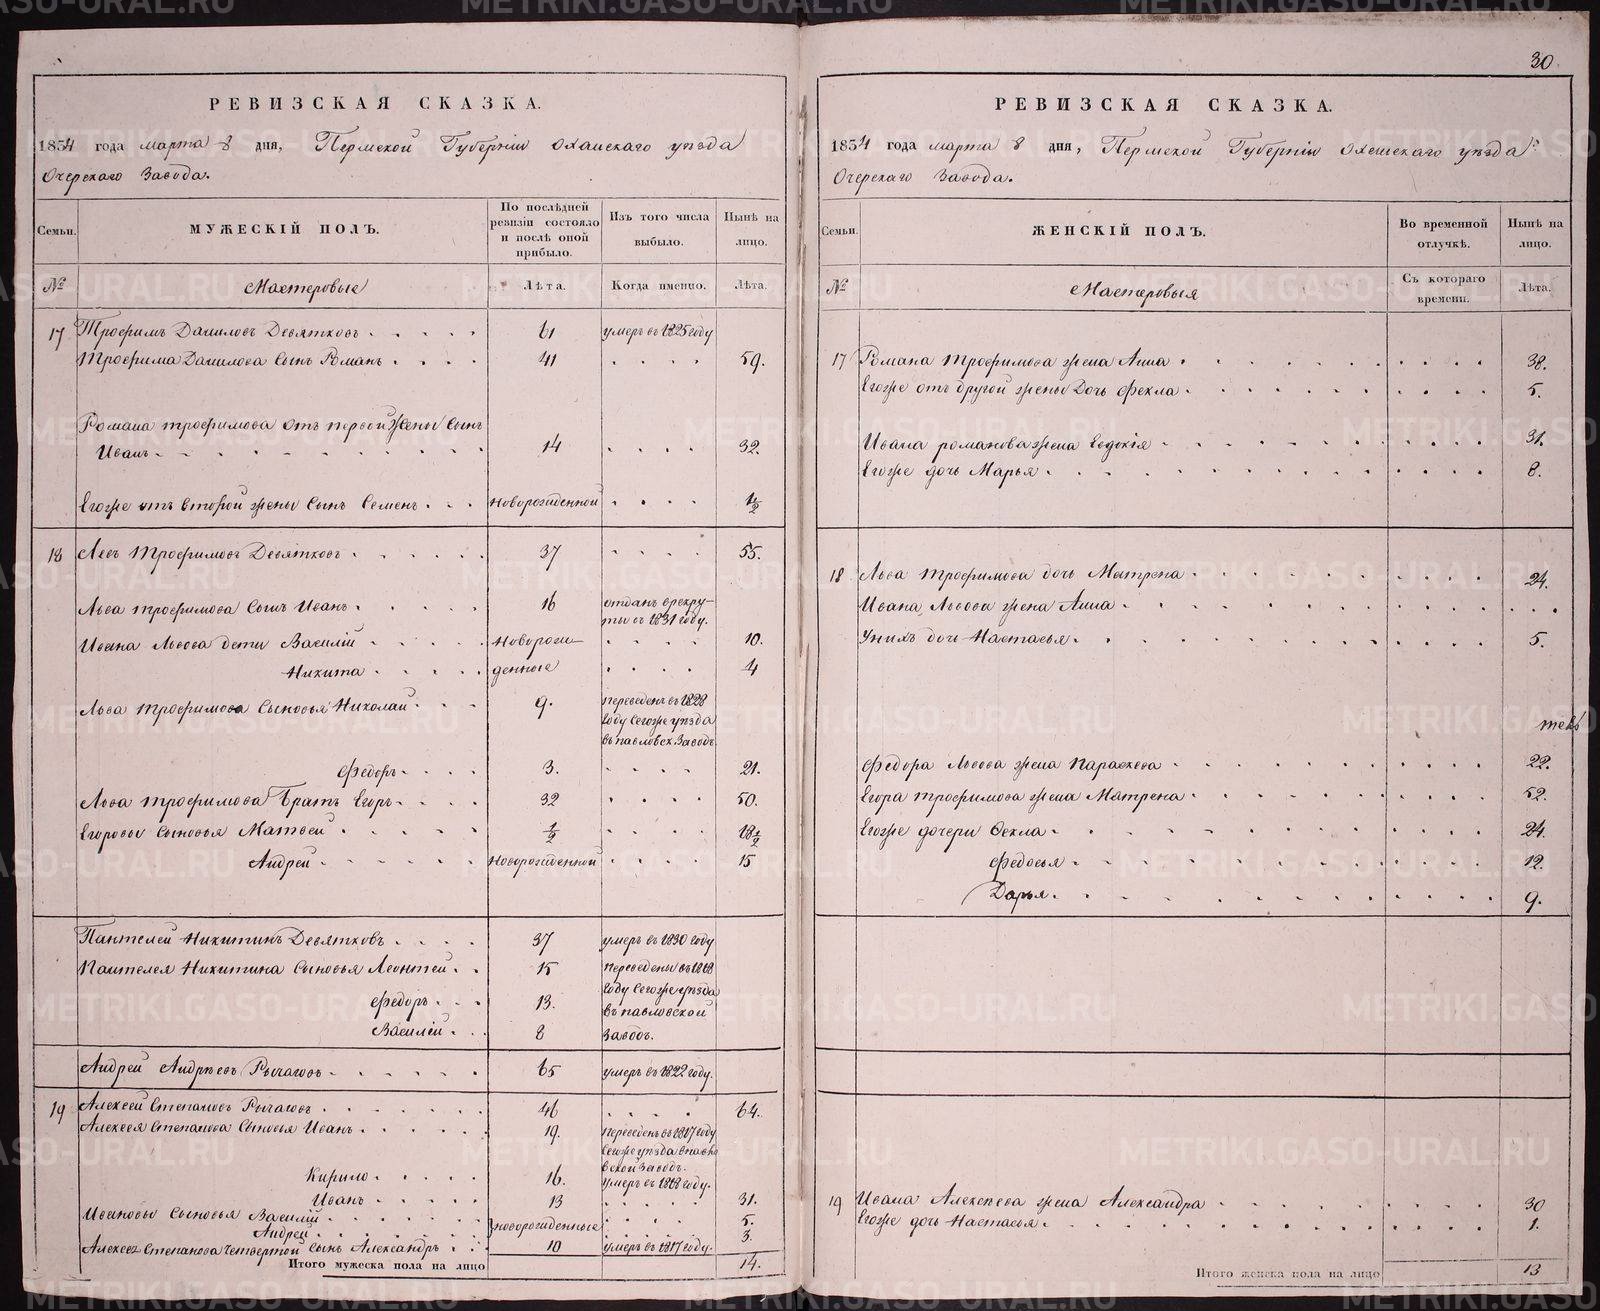 РЕВИЗСКАЯ СКАЗКА.
1834 года марта 8 дня, Пермской Губернiи Оханскаго уѣзда
Очерскаго Завода.
Семьи.
МУЖЕСКIЙ ПОЛЪ.
По послѣдней
ревизiи состояло
и послѣ оной
прибыло.
Изъ того числа
выбыло.
Нынѣ на
лицо.
№
Мастеровые
Лѣта.
Когда именно.
Лѣта.
17 Трофимъ Даниловъ Девятковъ 61 умеръ въ 1825 году
Трофима Данилова Сынъ Романъ 41 59.
Романа трофимова отъ первой Жены Сынъ
Иванъ 14 32.
Егоже отъ второй жены Сынъ Семенъ новорожденной 1/2
18 Левъ Трофимовъ Девятковъ 37 55.
Льва трофимова Сынъ Иванъ 16 отданъ врекру-
ты въ 1831 году.
Ивана Львова дети Василiй новорож- 10.
Никита денные 4
Льва трофимова Сыновья Николай 9. переведенъ въ 1828
году Сегоже уѣзда
въ павловск. Заводъ
Федоръ 3. 21.
Льва трофимова Братъ Егоръ 32 50.
Егоровы Сыновья Матвей 1/2 18 1/2
Андрей новорожденной 15
Пантелей Никитинъ Девятковъ 37 умеръ въ 1830 году
Пантелея Никитина Сыновья Леонтей 15 переведены въ 1818
году Сегоже уѣзда
Федоръ 13. въ павловской
Василей 8 Заводъ.
Андрей Андрѣевъ Рычаговъ 65 умеръ въ 1822 году.
19 Алексей Степановъ Рычаговъ 46 64.
Алексея Степанова Сыновья Иванъ 19. переведенъ въ 1817 году
Сегоже уѣзда в павло
вской Заводъ.
Кирило 16. умеръ въ 1818 году.
Иванъ 13 31.
Ивановы Сыновья Василiй новорожденные 5.
Андрей 3.
Алексея Степанова четвертой Сынъ Александръ 10 умеръ въ 1817 году.
Итого мужеска пола на лицо 14.
30
РЕВИЗСКАЯ СКАЗКА.
1834 года марта 8 дня, Пермской Губернiи Оханскаго уѣзда
Очерскаго Завода.
Семьи.
ЖЕНСКIЙ ПОЛЪ.
Во временной
отлучкѣ.
Нынѣ на
лицо.
№
Мастеровыя
Съ котораго
времени.
Лѣта.
17 Романа Трофимова жена Анна 38.
Егоже отъ другой жены Дочь Фекла 5.
Ивана романова жена Евдокiя 31.
Егоже дочь Марья 8.
18 Льва трофимова дочь Матрена 24.
Ивана Львова жена Анна
Унихъ дочь Настасья 5.
Федора Львова жена Параскева 22.
Егора трофимова жена Матрена 52.
Егоже дочери Фекла 24.
Федосья 12.
Дарья 9.
19 Ивана Алексѣева жена Александра 30
Егоже дочь Настасья 1.
Итого женска пола на лицо 13
METRIKI.GASO-URAL.RU